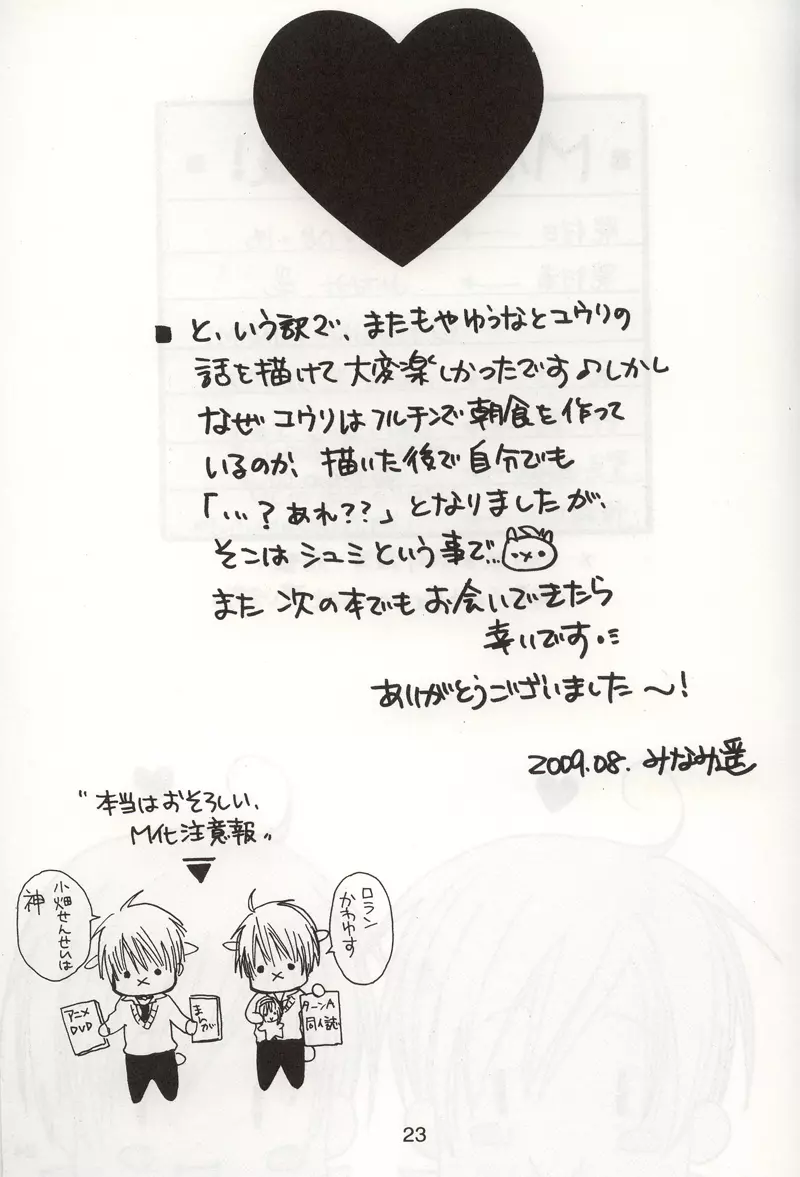 ■ と、いう訳で、またもやゆうなとユウリの
話を描けて大変楽しかったです♪しかし
なぜユウリはフルチンで朝食を作って
いるのか、描いた後で自分でも
「…？あれ??」となりましたが、
そこはシュミという事で…
また次の本でもお会いできたら
幸いです。
ありがとうございました〜！
2009.08. みなみ遥
〝本当はおそろしい、
M化注意報〟
小畑せんせいは
神
アニメ
DVD
まんが
ロラン
かわゆす
ターンA
同人誌
23